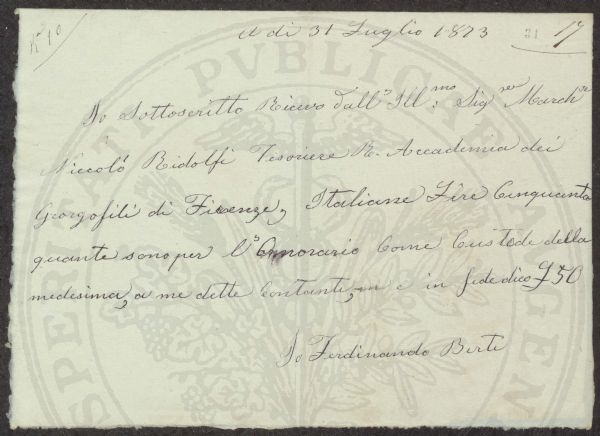 N° 10
A di 31 Luglio 1873
31 17
Io Sottoscritto Ricevo dall' Ill:mo Sigre March
Niccoló Ridolfi Tesoriere R. Accademia dei
Georgofili di Firenze, Italiane Lire Cinquanta
quante sono per l' Onnorario Come Custode della
medesima, a me dette Contanti, e in fede dico £ 50
Io Ferdinando Berti
PUBLICA